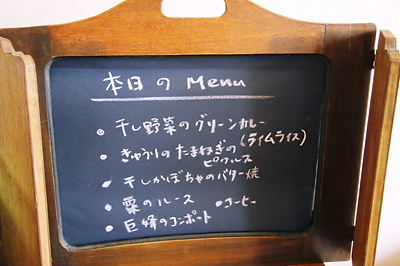 本日の Menu
・干し野菜のグリーンカレー
(ライムライス)
・きゅうりのたまねぎの
ピクルス
・干しかぼちゃのバター焼
・栗のムース ・コーヒー
・巨峰のコンポート